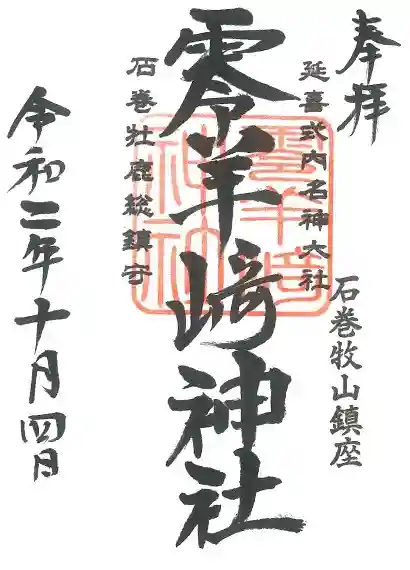 奉拝
延喜式内名神大社
石巻牧山鎮座
零羊﨑神社
石巻牡鹿総鎮守
令和二年十月四日